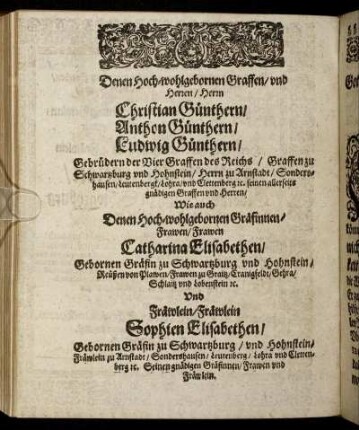 Denen Hoch-wohlgebornen Graffen/ vnd
Herren/ Herrn
Christian Günthern/
Anthon Günthern/
Ludwig Günthern/
Gebrüdern der Vier Graffen des Reichs / Graffen zu
Schwartzburg vnd Hohnstein/ Herrn zu Arnstadt/ Sonders-
hausen/ Leutenbergk/ Lohra/ vnd Clettenberg ꝛc. seinen allerseits
gnädigen Graffen vnd Herren/
Wie auch
Denen Hoch-wohlgebornen Gräfinnen/
Frawen/ Frawen
Catharina Elisabethen/
Gebornen Gräfin zu Schwartzburg vnd Hohnstein/
Reüßen von Plawen/ Frawen zu Graitz/ Cranigfeldt/ Gehra/
Schlaitz vnd Lobenstein ꝛc.
Vnd
Fräwlein/ Fräwlein
Sophien Elisabethen/
Gebornen Gräfin zu Schwartzburg / vnd Hohnstein/
Fräwlein zu Arnstadt/ Sondershausen/ Leutenberg/ Lohra vnd Cletten-
berg ꝛc. Seinen gnädigen Gräfinnen/ Frawen vnd
Fräwlein.